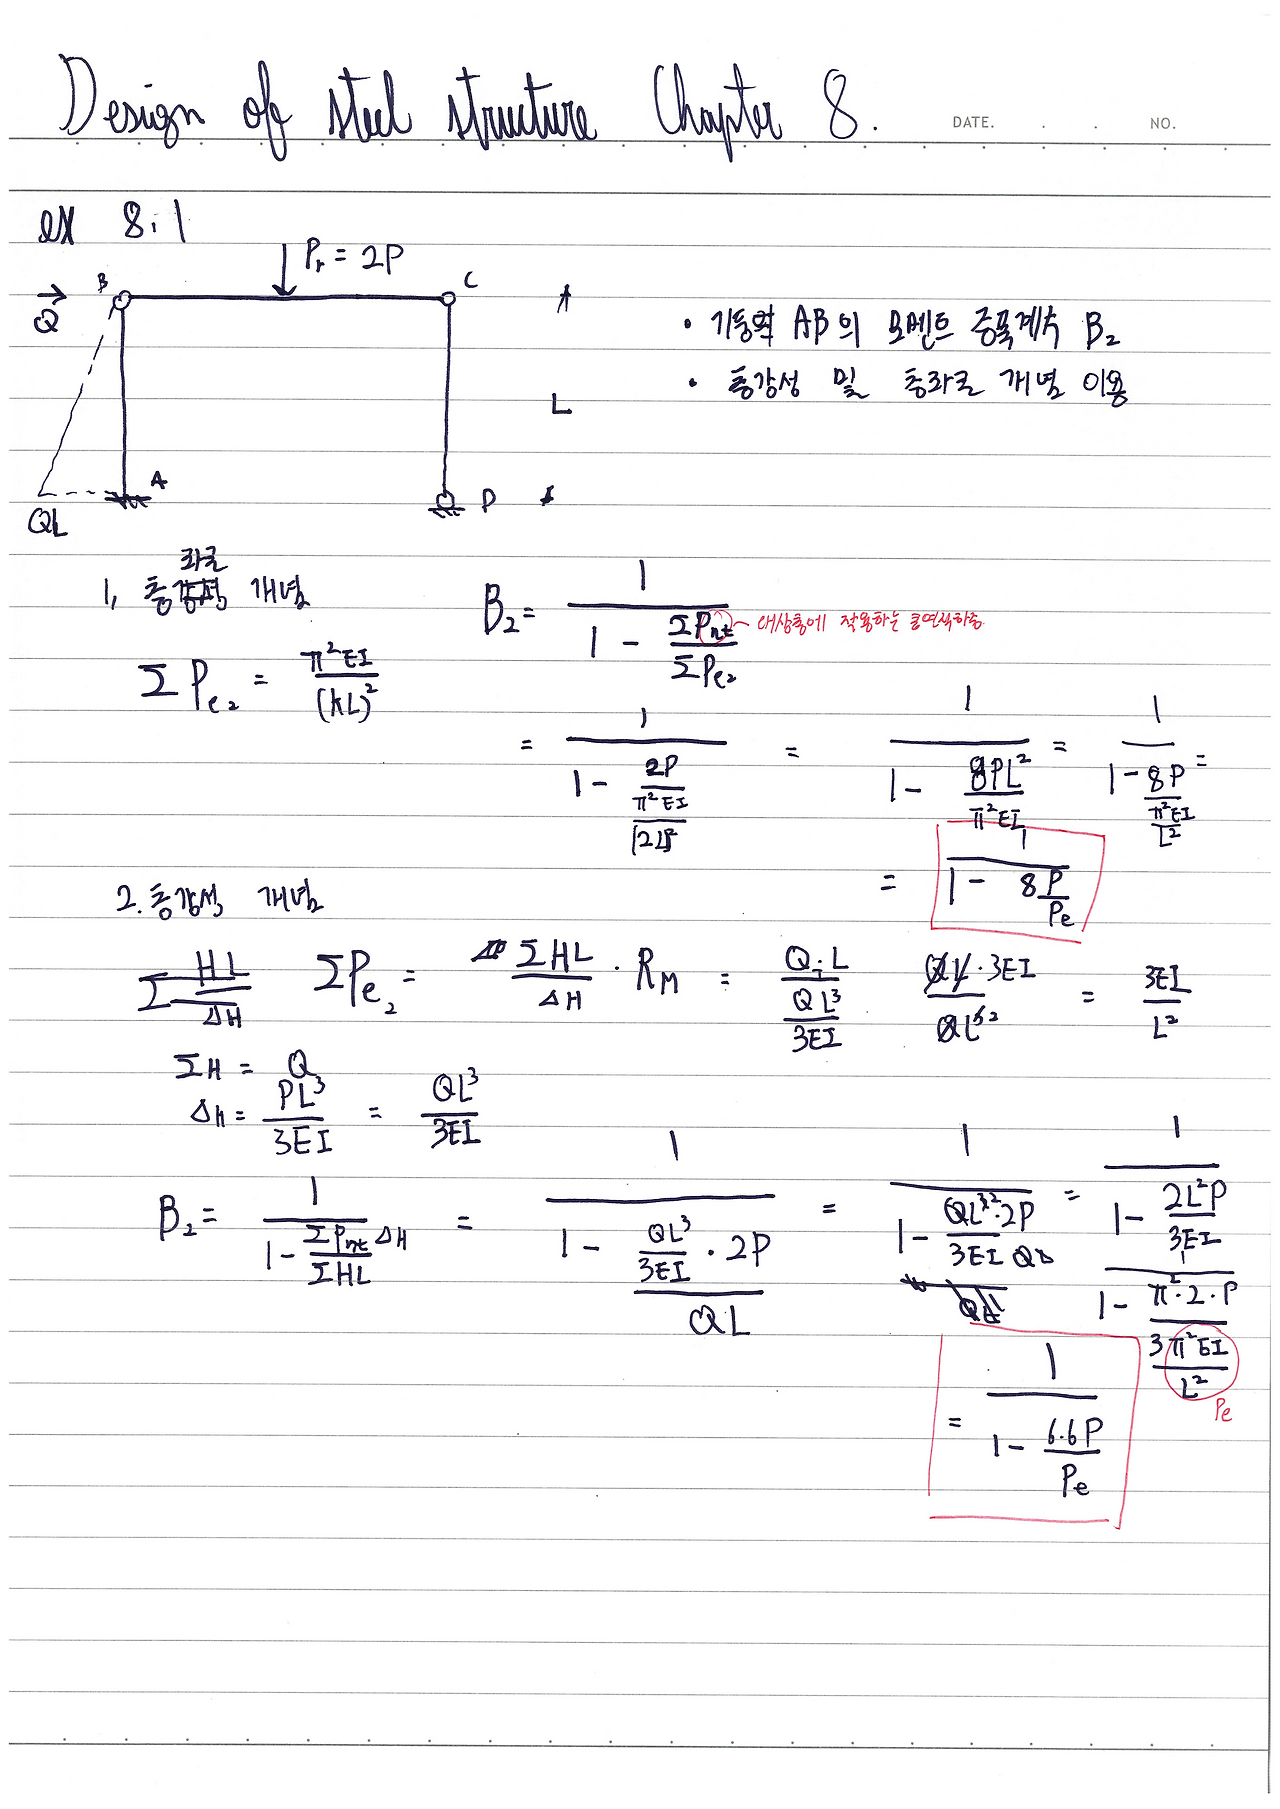 Design of steel structure Chapter 8.
DATE. . . NO.
ex 8.1
P_r = 2P
B C
Q
A D
L
QL
• 기둥 AB의 모멘트 증폭계수 B₂
• 층강성 및 층좌굴 개념 이용
좌굴
1. 층강성 개념
ΣP_e₂ = π²EI / (kL)²
B₂ = 1 / (1 - ΣP_nt / ΣP_e₂)
대상층에 작용하는 총연직하중
= 1 / (1 - 2P / (π²EI / (2L)²)) = 1 / (1 - 8PL² / π²EI) = 1 / (1 - 8P / (π²EI / L²)) =
= 1 / (1 - 8P / Pe)
2. 층강성 개념
Σ HL / ΔH ΣP_e₂ = ΣHL / ΔH · R_M = Q·L / (QL³ / 3EI) QL·3EI / QL³² = 3EI / L²
ΣH = Q
ΔH = PL³ / 3EI = QL³ / 3EI
B₂ = 1 / (1 - ΣP_nt ΔH / ΣHL) = 1 / (1 - (QL³ / 3EI · 2P) / QL) = 1 / (1 - QL³²·2P / 3EI QL) = 1 / (1 - 2L²P / 3EI)
QL
1 / (1 - π²·2·P / (3 π²EI / L²))
Pe
= 1 / (1 - 6.6P / Pe)